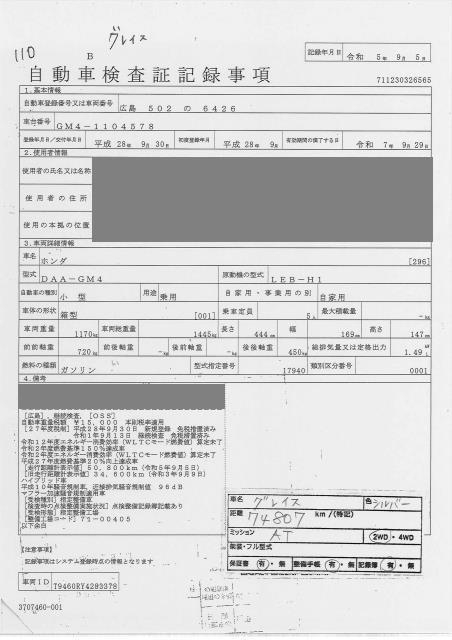 グレイス
110
B
記録年月日 令和 5年 9月 5日
自動車検査証記録事項
711230326565
1.基本情報
自動車登録番号又は車両番号 広島 502 の 6426
車台番号 GM4-1104578
登録年月日/交付年月日 平成 28年 9月 30日 初度登録年月 平成 28年 9月 有効期間の満了する日 令和 7年 9月 29日
2.使用者情報
使用者の氏名又は名称
使用者の住所
使用の本拠の位置
3.車両詳細情報
車名 ホンダ [296]
型式 DAA-GM4 原動機の型式 LEB-H1
自動車の種別 小型 用途 乗用 自家用・事業用の別 自家用
車体の形状 箱型 [001] 乗車定員 5人 最大積載量 -kg
車両重量 1170kg 車両総重量 1445kg 長さ 444cm 幅 169cm 高さ 147cm
前前軸重 720kg 前後軸重 -kg 後前軸重 -kg 後後軸重 450kg 総排気量又は定格出力 1.49L
燃料の種類 ガソリン 型式指定番号 17940 類別区分番号 0001
4.備考
[広島] 継続検査, [OSS]
自動車重量税額 ¥15,000 本則税率適用
[27年度税制] 平成28年9月30日 新規登録 免税措置済み
令和1年9月13日 継続検査 免税措置済み
令和12年度エネルギー消費効率(WLTCモード燃費値)算定未了
令和2年度燃費基準150%達成車
令和2年度エネルギー消費効率(WLTCモード燃費値)算定未了
平成27年度燃費基準20%向上達成車
[走行距離計表示値] 50,800km (令和5年9月5日)
[旧走行距離計表示値] 34,600km (令和3年9月9日)
ハイブリッド車
平成10年騒音規制車, 近接排気騒音規制値 96dB
マフラー加速騒音規制適用車
[受検種別] 指定整備車
[検査時の点検整備実施状況] 点検整備記録簿記載あり
[受検形態] 指定整備工場
[整備工場コード] 71-00405
以下余白
車名 グレイス 色 シルバー
距離 74807 km/(特記)
ミッション AT 2WD・4WD
架装・フル型式
保証書 有・無 整備手帳 有・無 記録簿 有・無
【注意事項】
記録事項はシステム登録時点の情報となります。
車両ID 79460RY4283378
3707460-001